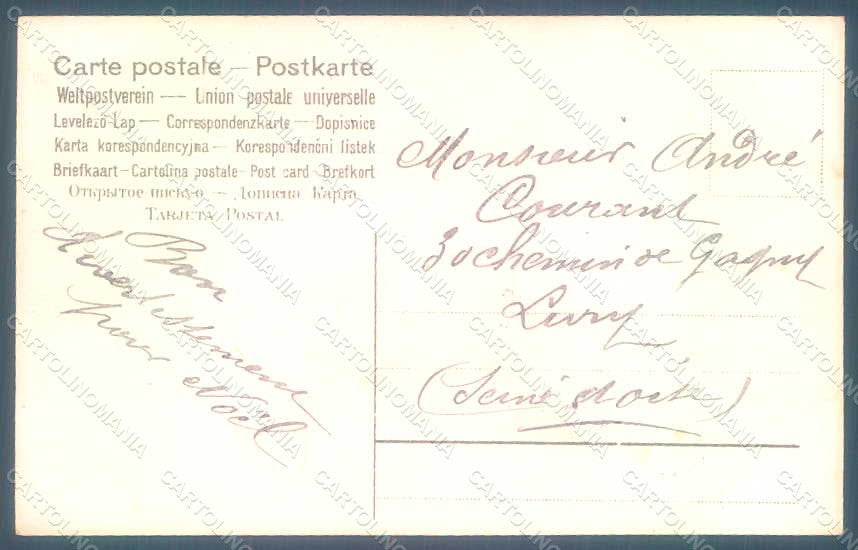 Carte postale – Postkarte
Weltpostverein — Union postale universelle
Levelező-Lap — Correspondenzkarte — Dopisnice
Karta korespondencyjna — Korespondenčni listek
Briefkaart – Cartolina postale – Post card Brefkort
Открытое письмо — Дописна Карта
TARJETA POSTAL
Bon
divertissement
pour Noël
Monsieur André
Courant
30 chemin de Gagny
Livry
(Seine et oise)
CARTOLINOMANIA